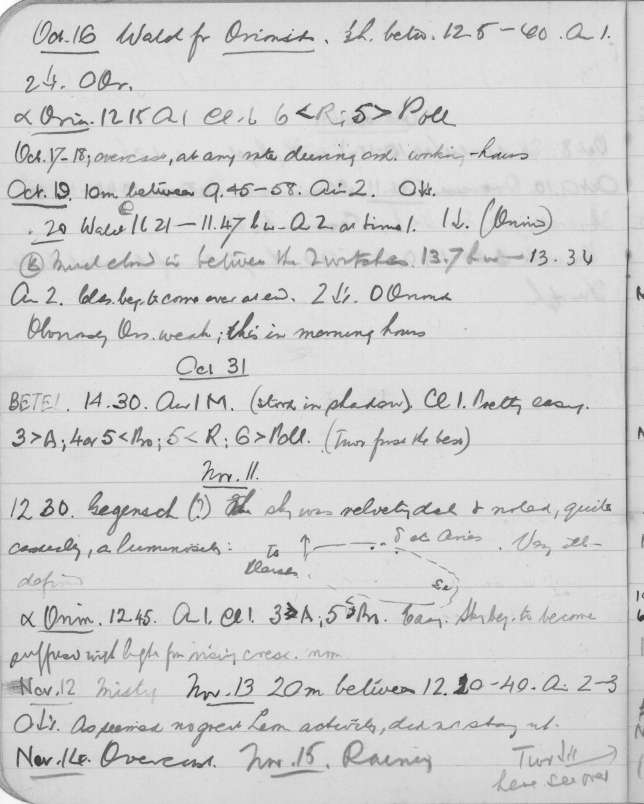 Oct. 16 Watch for Orionids. ½h. betw. 12 5 - 40. A 1.
2 ↓s. 0 Or.
α Orion. 12 15 A 1 Cl. 6 < R; 5 > Poll
Oct. 17-18; overcast, at any rate during ord. working-hours
Oct. 19. 10m between 9.45-58. Air 2. 0 ↓s.
20 Watch 11 21 - 11.47 A 2 at times 1. 1 ↓. (Orion)
cloud in between the 2 watches. 13.7 - 13.34
Air 2. beg. to come over at end. 2 ↓s. 0 Orionid
Obviously Ors. weak; this in morning hours
Oct 31
BETEL. 14.30. Air 1 M. (stood in shadow). Cl 1. Pretty easy.
3 > A; 4 or 5 < Pro; 5 < R; 6 > Poll. (Two first the best)
Nov. 11.
12 30. Gegensch (?) The sky was velvety dark & noted, quite
casually, a luminosity: To δ Aries. Very ill-
defined
α Orion. 12.45. A 1. Cl 1. 3 > A; 5 > Pro. Easy. Sky beg. to become
suffused with light from rising cresc. moon
Nov. 12 Misty Nov. 13 20m between 12.20-40. Air 2-3
0 ↓s. As seemed no great Leon activity, did not stay up.
Nov. 14. Overcast. Nov. 15. Rainy
Two ↓s
here see over